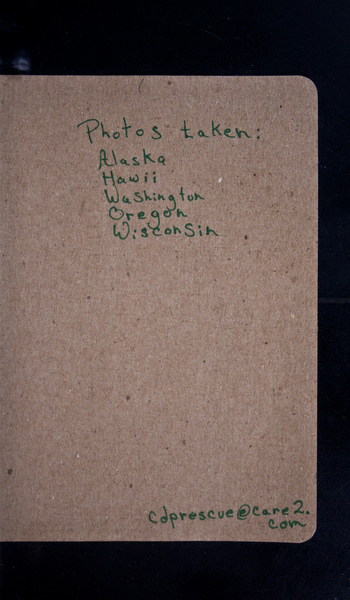 Photos taken:
Alaska
Hawii
Washington
Oregon
Wisconsin
cdprescue@care2.
com